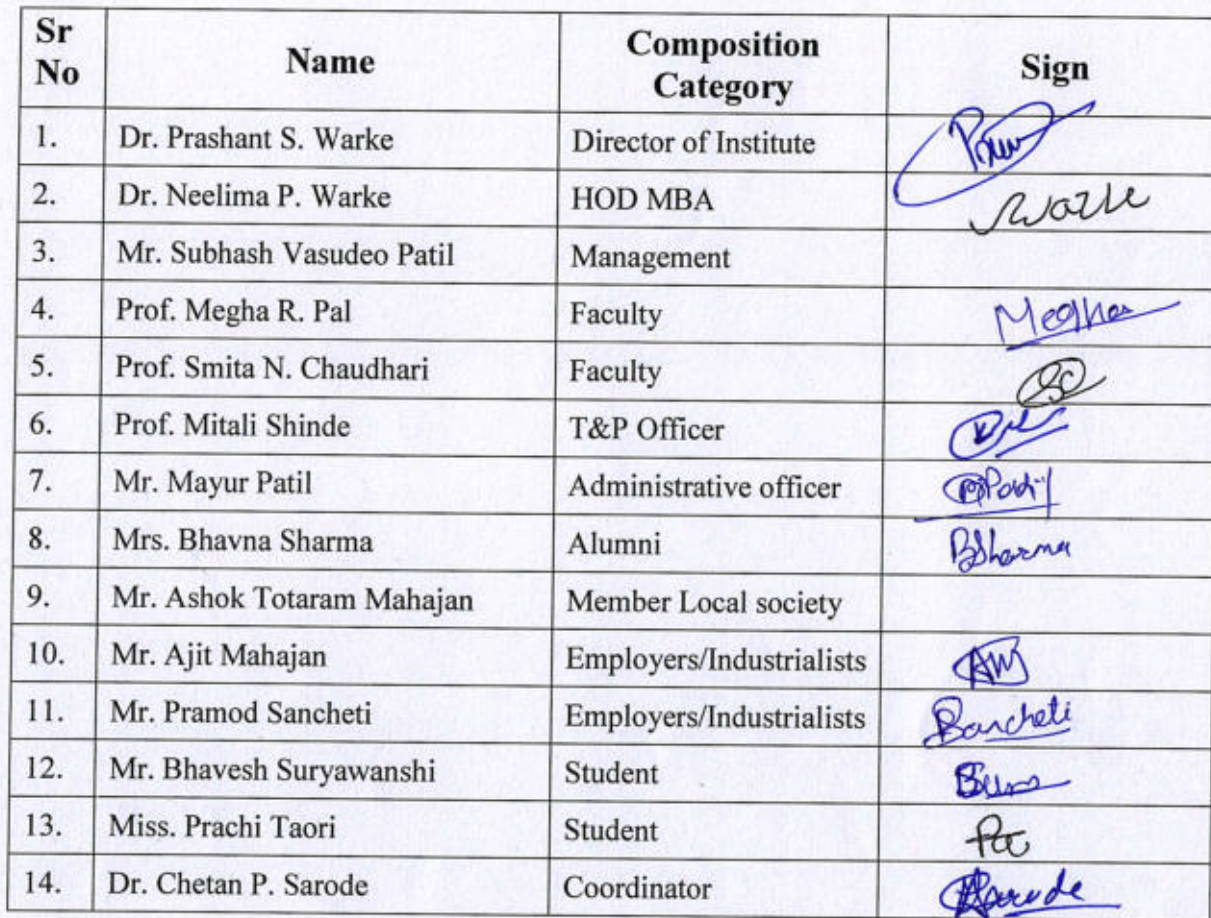 Sr No Name Composition Category Sign
1. Dr. Prashant S. Warke Director of Institute
2. Dr. Neelima P. Warke HOD MBA Warke
3. Mr. Subhash Vasudeo Patil Management
4. Prof. Megha R. Pal Faculty Megha
5. Prof. Smita N. Chaudhari Faculty
6. Prof. Mitali Shinde T&P Officer
7. Mr. Mayur Patil Administrative officer
8. Mrs. Bhavna Sharma Alumni BSharma
9. Mr. Ashok Totaram Mahajan Member Local society
10. Mr. Ajit Mahajan Employers/Industrialists
11. Mr. Pramod Sancheti Employers/Industrialists Sancheti
12. Mr. Bhavesh Suryawanshi Student
13. Miss. Prachi Taori Student
14. Dr. Chetan P. Sarode Coordinator